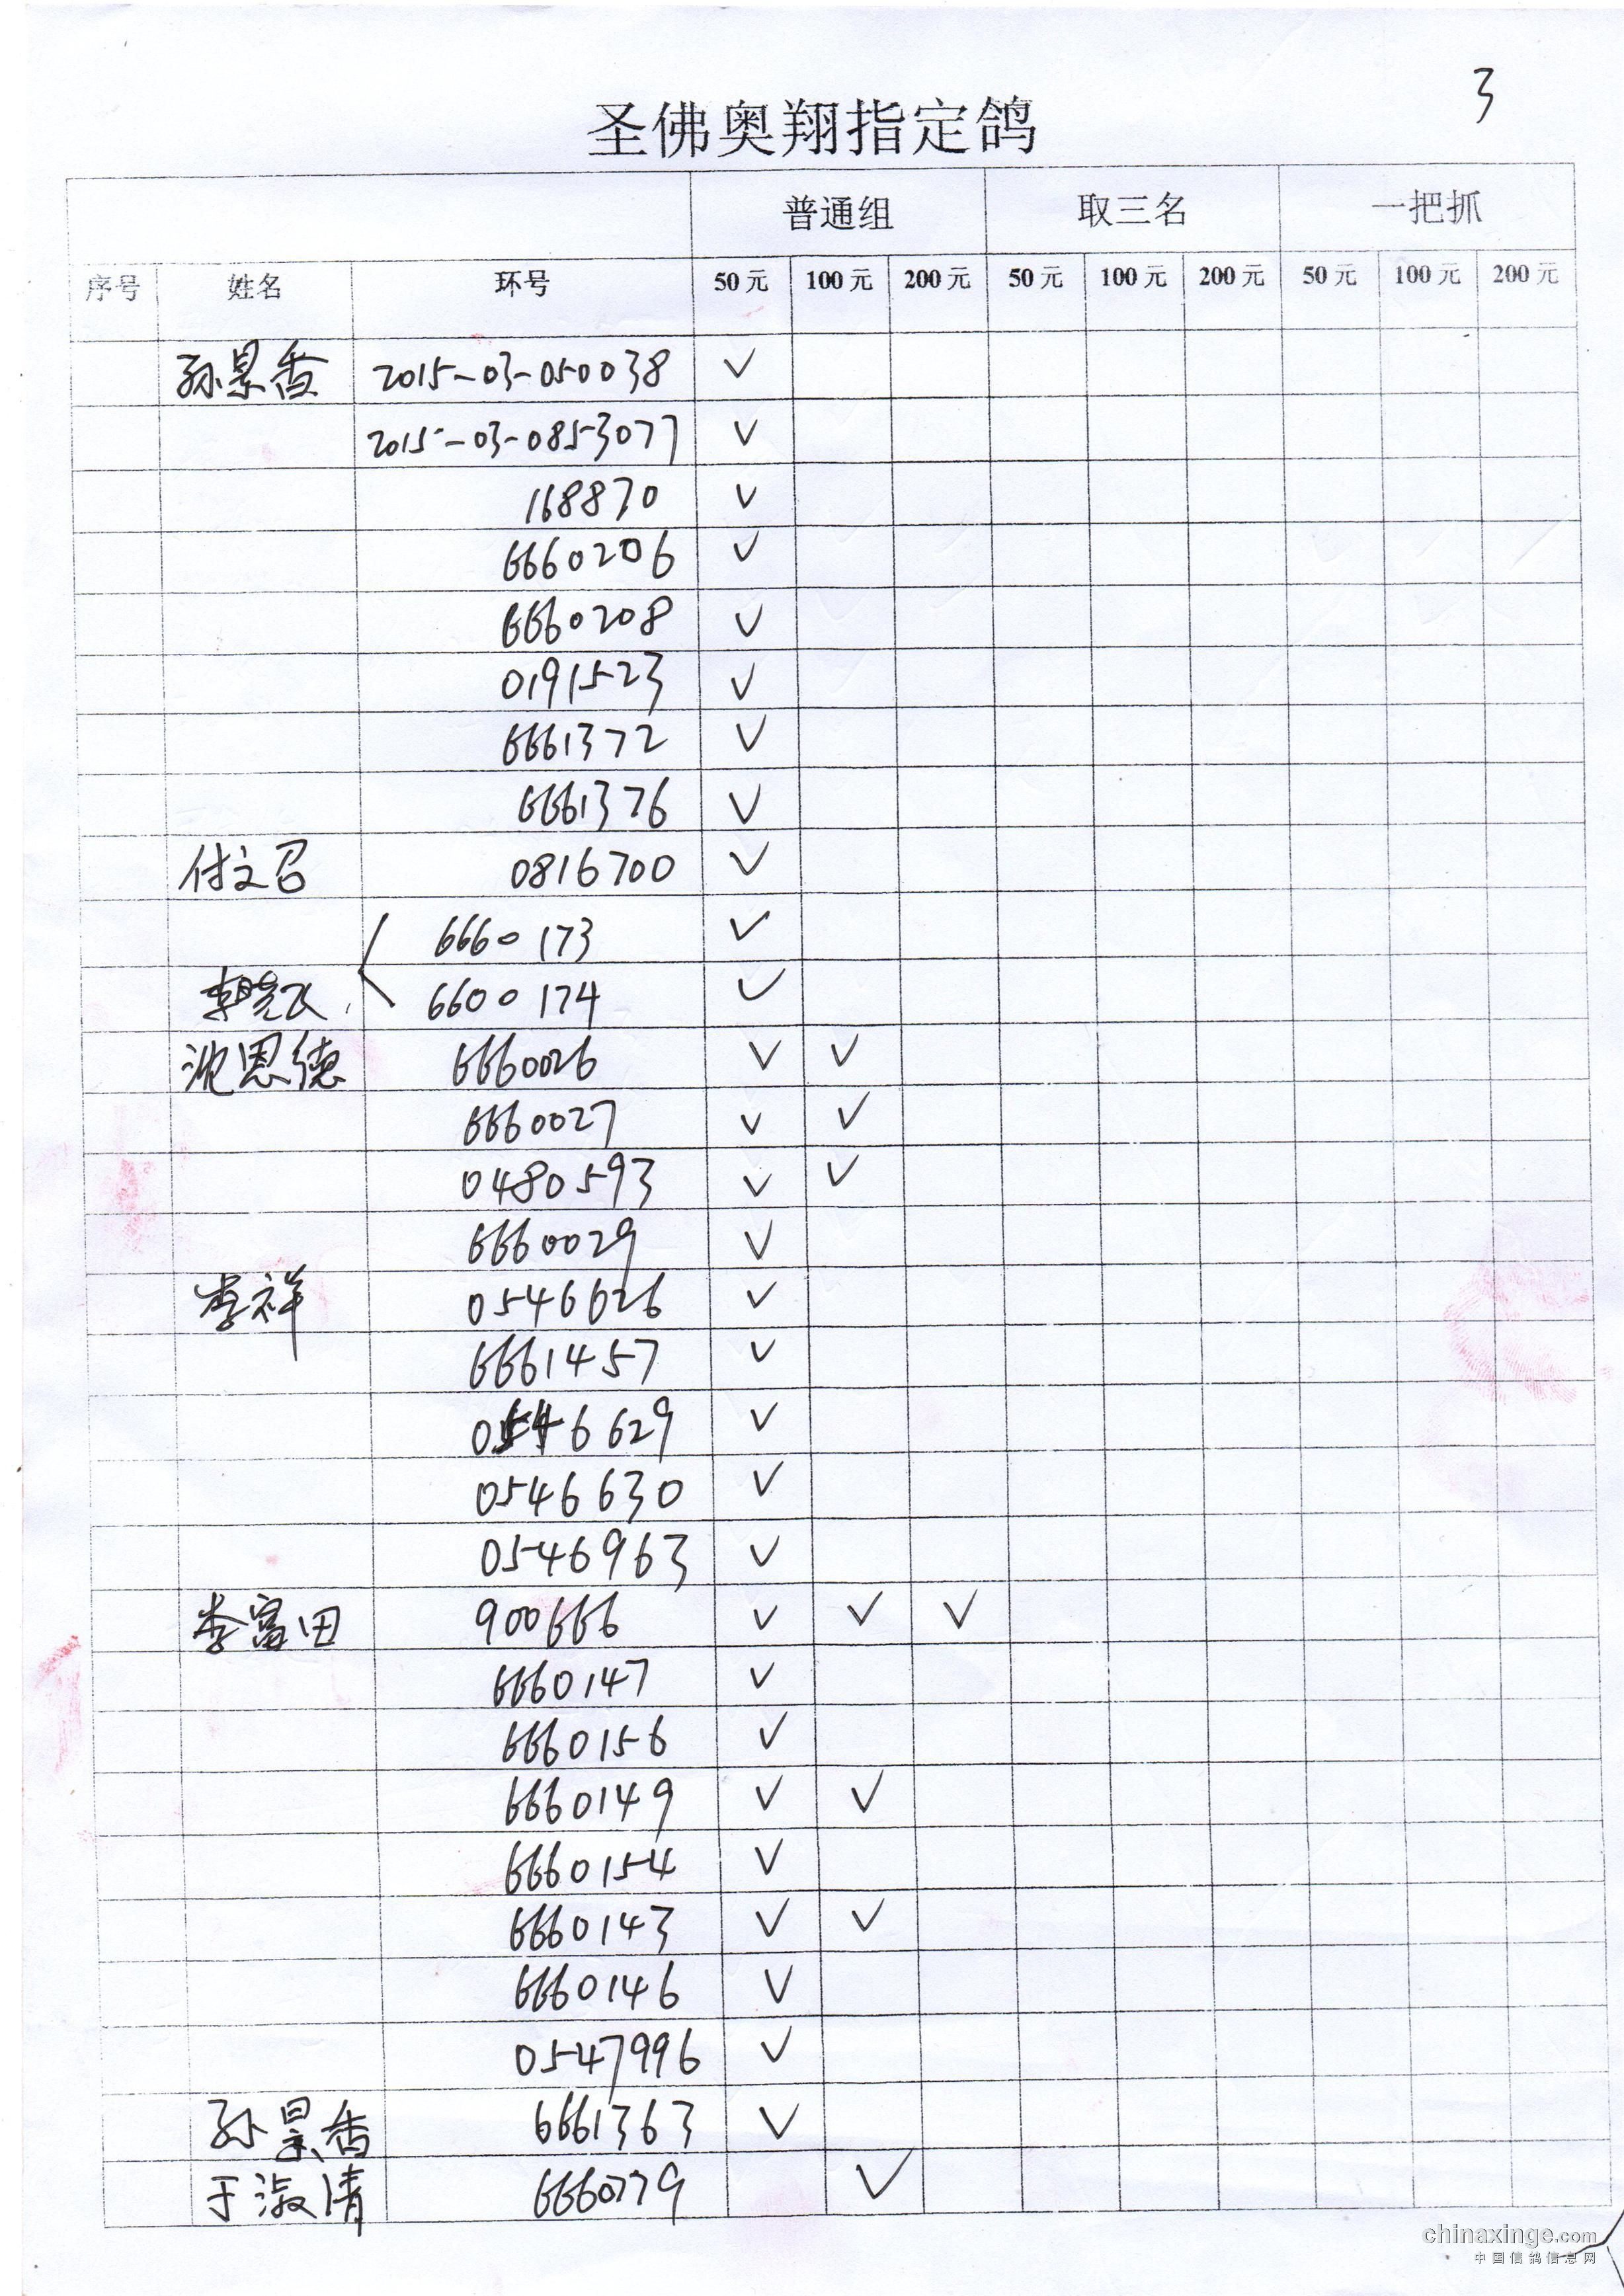 3
圣佛奥翔指定鸽
普通组 取三名 一把抓
序号 姓名 环号 50元 100元 200元 50元 100元 200元 50元 100元 200元
孙景香 2015-03-050038 √
2015-03-0853077 √
168870 √
6660206 √
6660208 √
0191523 √
6661372 √
6661376 √
付文召 0816700 √
6660173 √
李晓飞 6600174 √
沈恩德 6660026 √ √
6660027 √ √
0480593 √ √
6660029 √
李祥 0546626 √
6661457 √
0546629 √
0546630 √
0546963 √
李富田 900666 √ √ √
6660147 √
6660156 √
6660149 √ √
6660154 √
6660143 √ √
6660146 √
0547996 √
孙景香 6661363 √
于淑清 6660779 √
chinaxinge.com
中国信鸽信息网